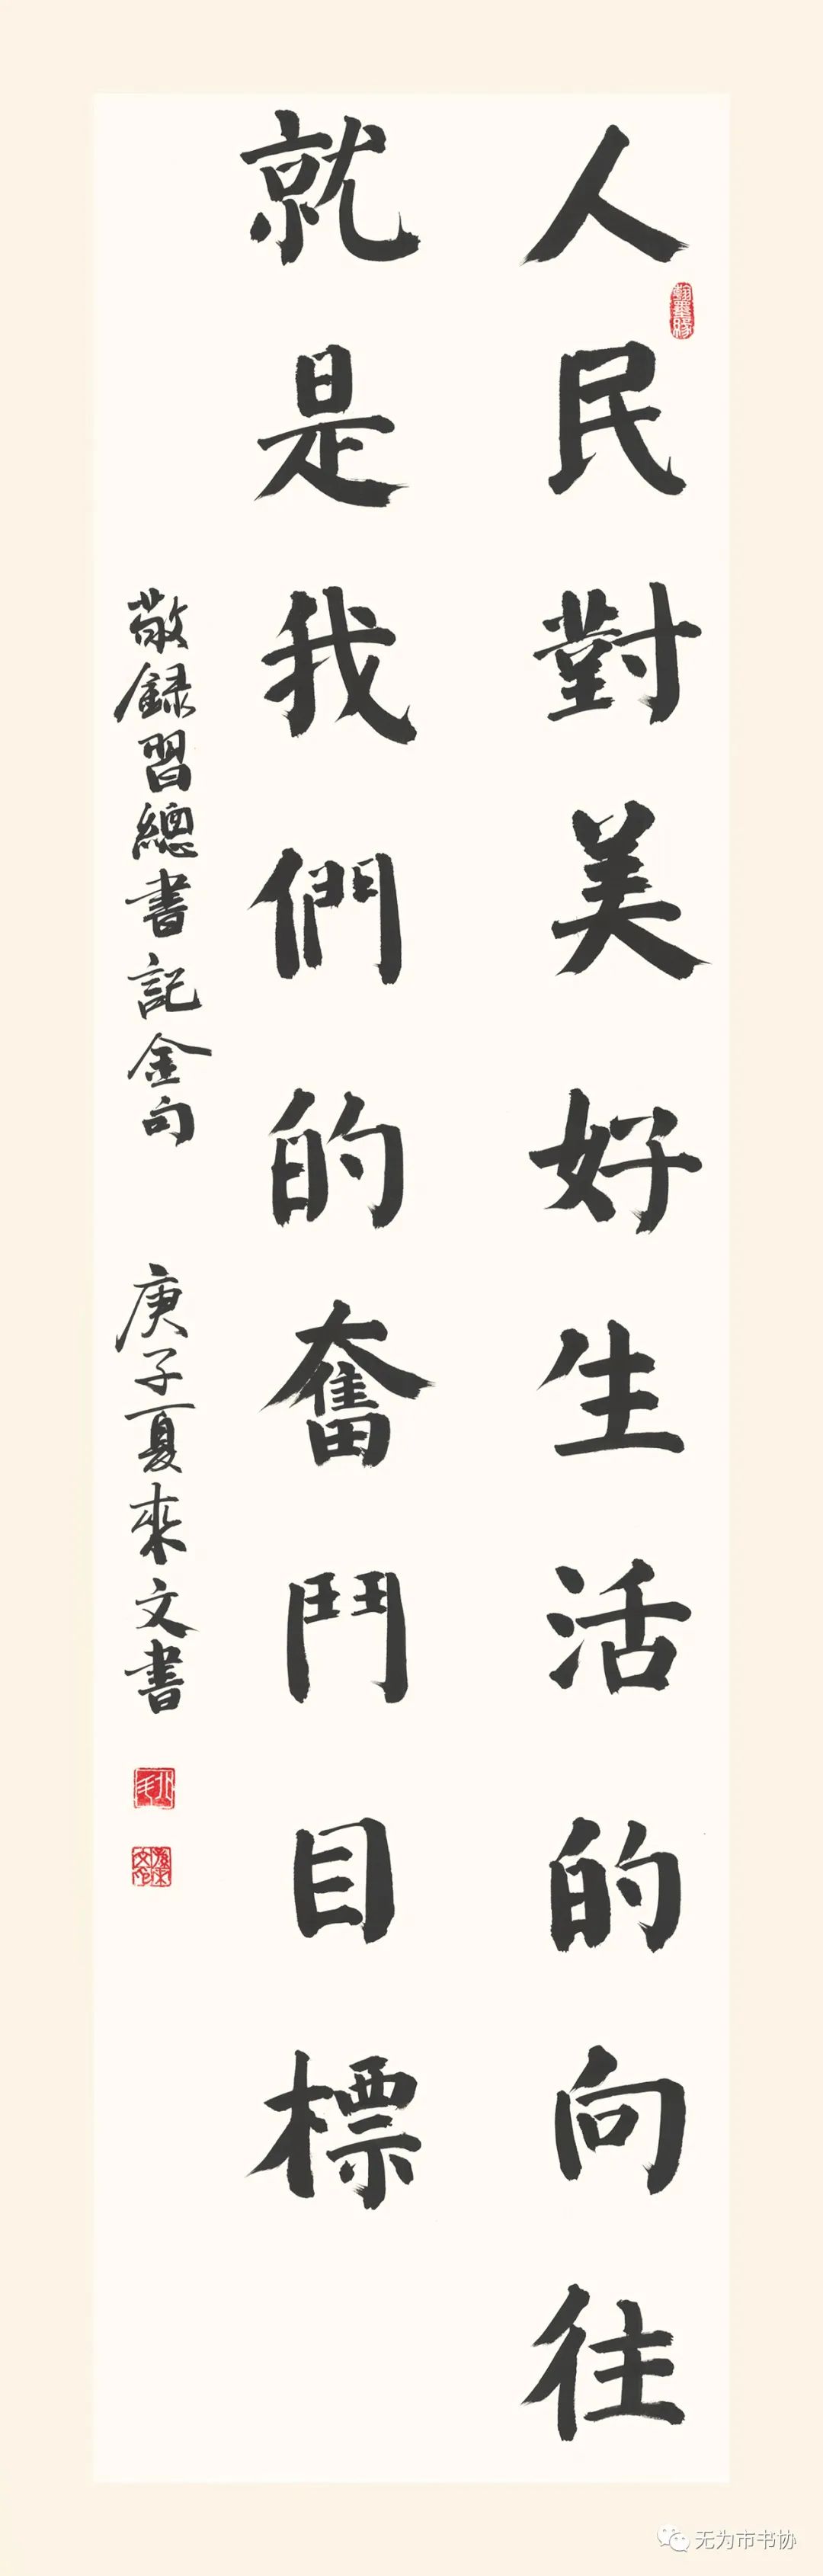 人民對美好生活的向往
就是我們的奮鬥目標
敬録習總書記金句 庚子夏來文書
翰墨緣
无为市书协